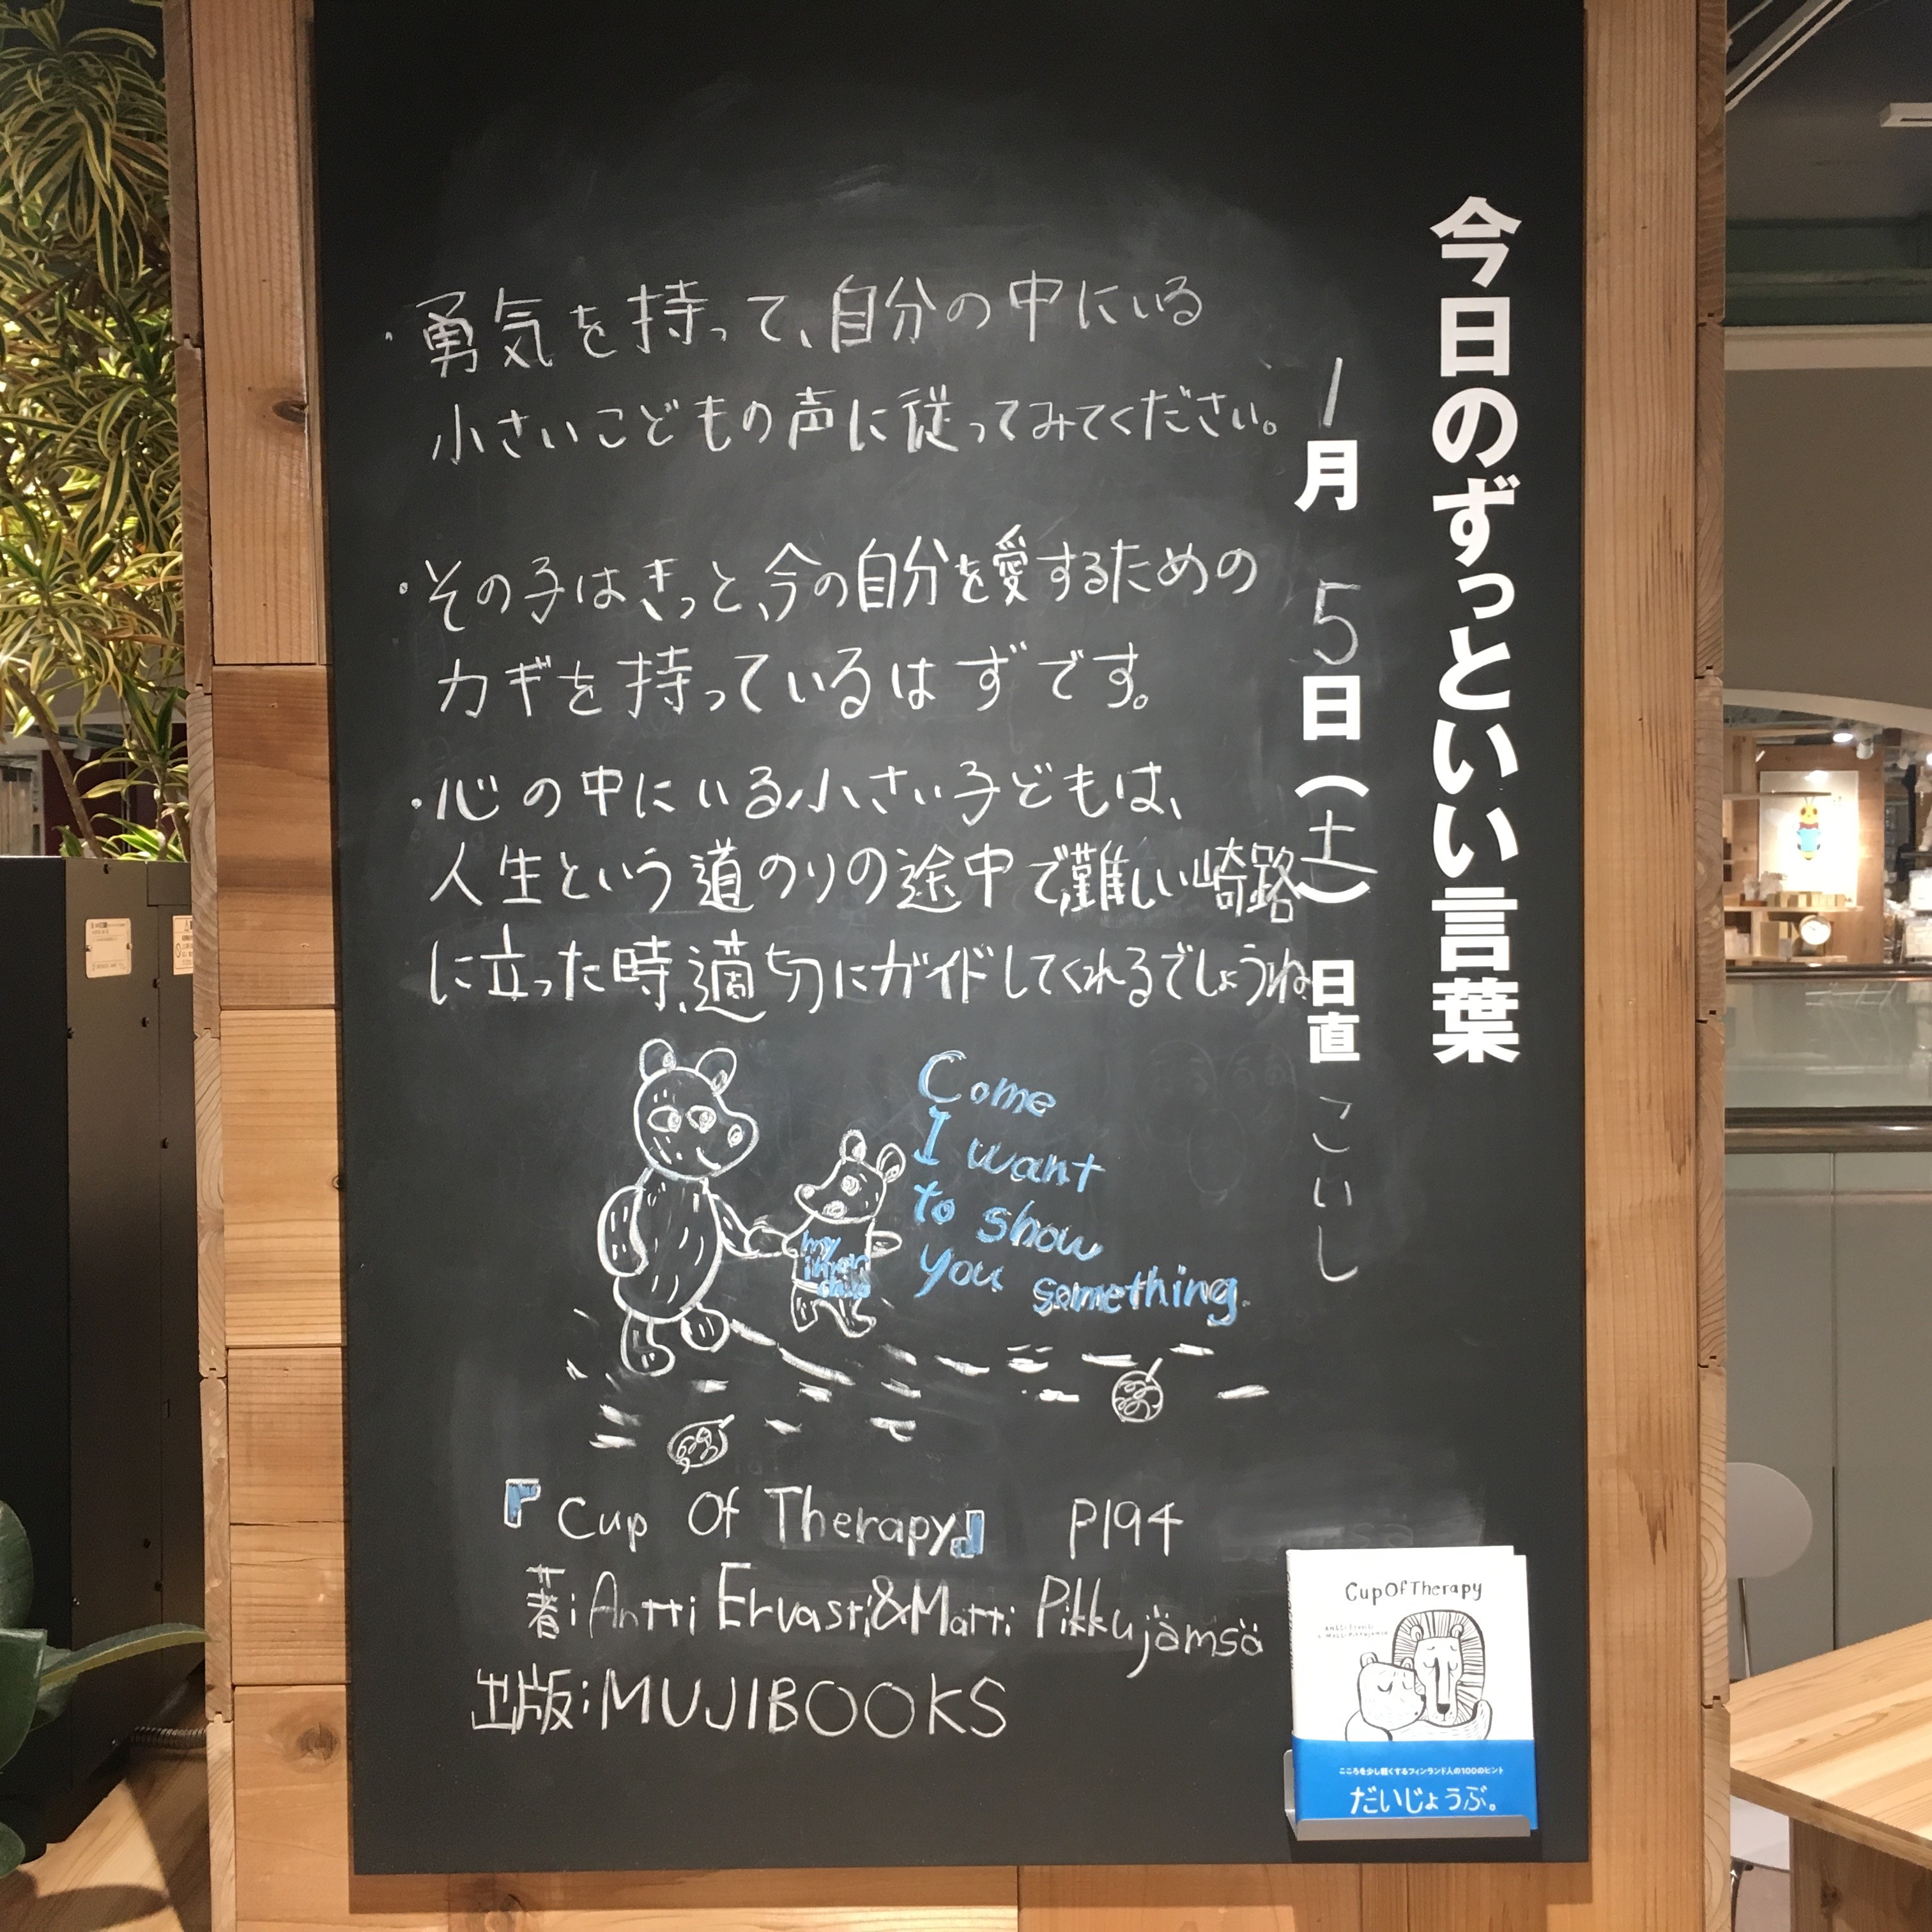 今日のずっといい言葉
1月5日(土) 日直 こいし
・勇気を持って、自分の中にいる
小さいこどもの声に従ってみてください。
・その子はきっと、今の自分を愛するための
カギを持っているはずです。
・心の中にいる小さい子どもは、
人生という道のりの途中で難しい崎路
に立った時、適切にガイドしてくれるでしょうね
Come
I want
to show
you something.
my
inner
child
『Cup Of Therapy』 P194
著:Antti Ervasti&Matti Pikkujämsä
出版:MUJIBOOKS
CupOfTherapy
Antti Ervasti
& Matti Pikkujämsä
こころを少し軽くするフィンランド人の100のヒント
だいじょうぶ。